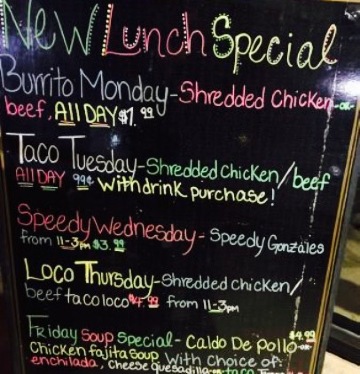 New Lunch Special
Burrito Monday-Shredded Chicken-or-
beef, All DAY $1.99
Taco Tuesday-Shredded Chicken/beef
All DAY 99¢ with drink purchase!
Speedy Wednesday- Speedy Gonzales
from 11-3pm $3.99
Loco Thursday-Shredded chicken/
beef taco loco $4.99 from 11-3pm
Friday Soup Special- Caldo De Pollo -or- $4.99
Chicken fajita Soup with choice of
enchilada, cheese quesadilla -or- taco